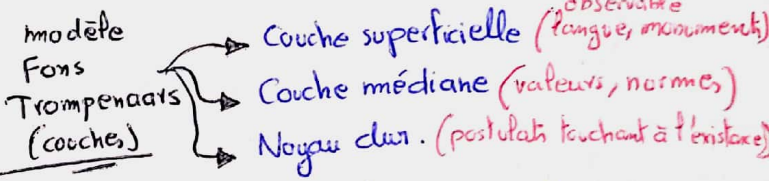 modèle
Fons
Trompenaars
(couches)
observable
Couche superficielle (langue, monuments)
Couche médiane (valeurs, normes)
Noyau dur. (postulats touchant à l'existance)